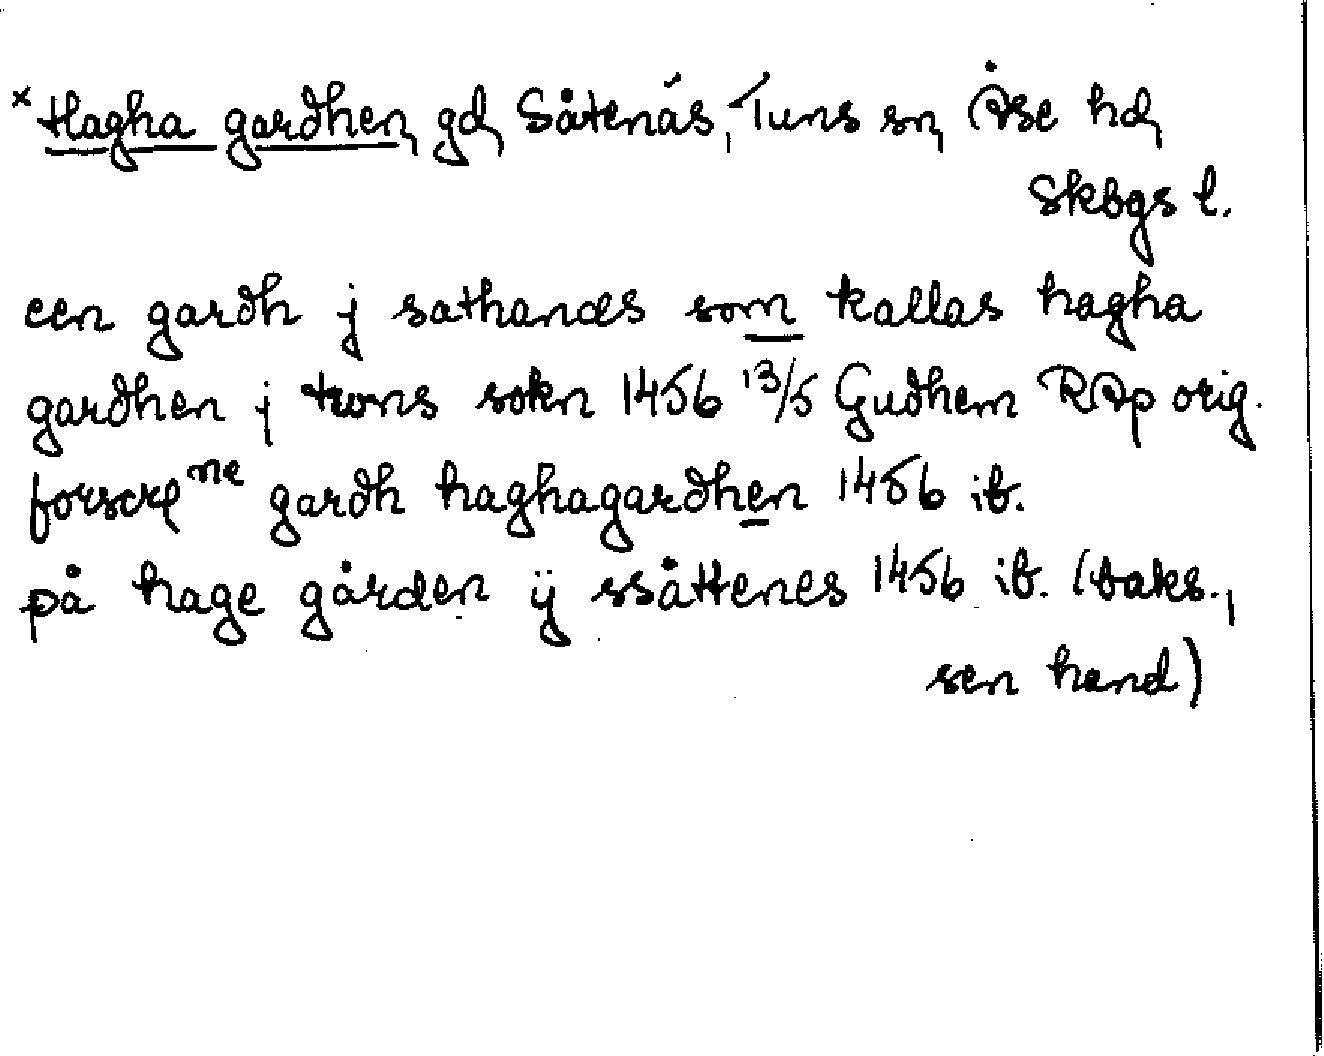 × Hagha gardhen, gd, Såtenäs, Tuns sn, Åse hd,
Skbgs l.
een gardh j sathanæs som kallas hagha
gardhen j twns sokn 1456 13/5 Gudhem RAp orig.
forscrꝭ ne gardh haghagardhen 1456 ib.
på hage gården ÿ ssåttenes 1456 ib. (baks.,
sen hand)